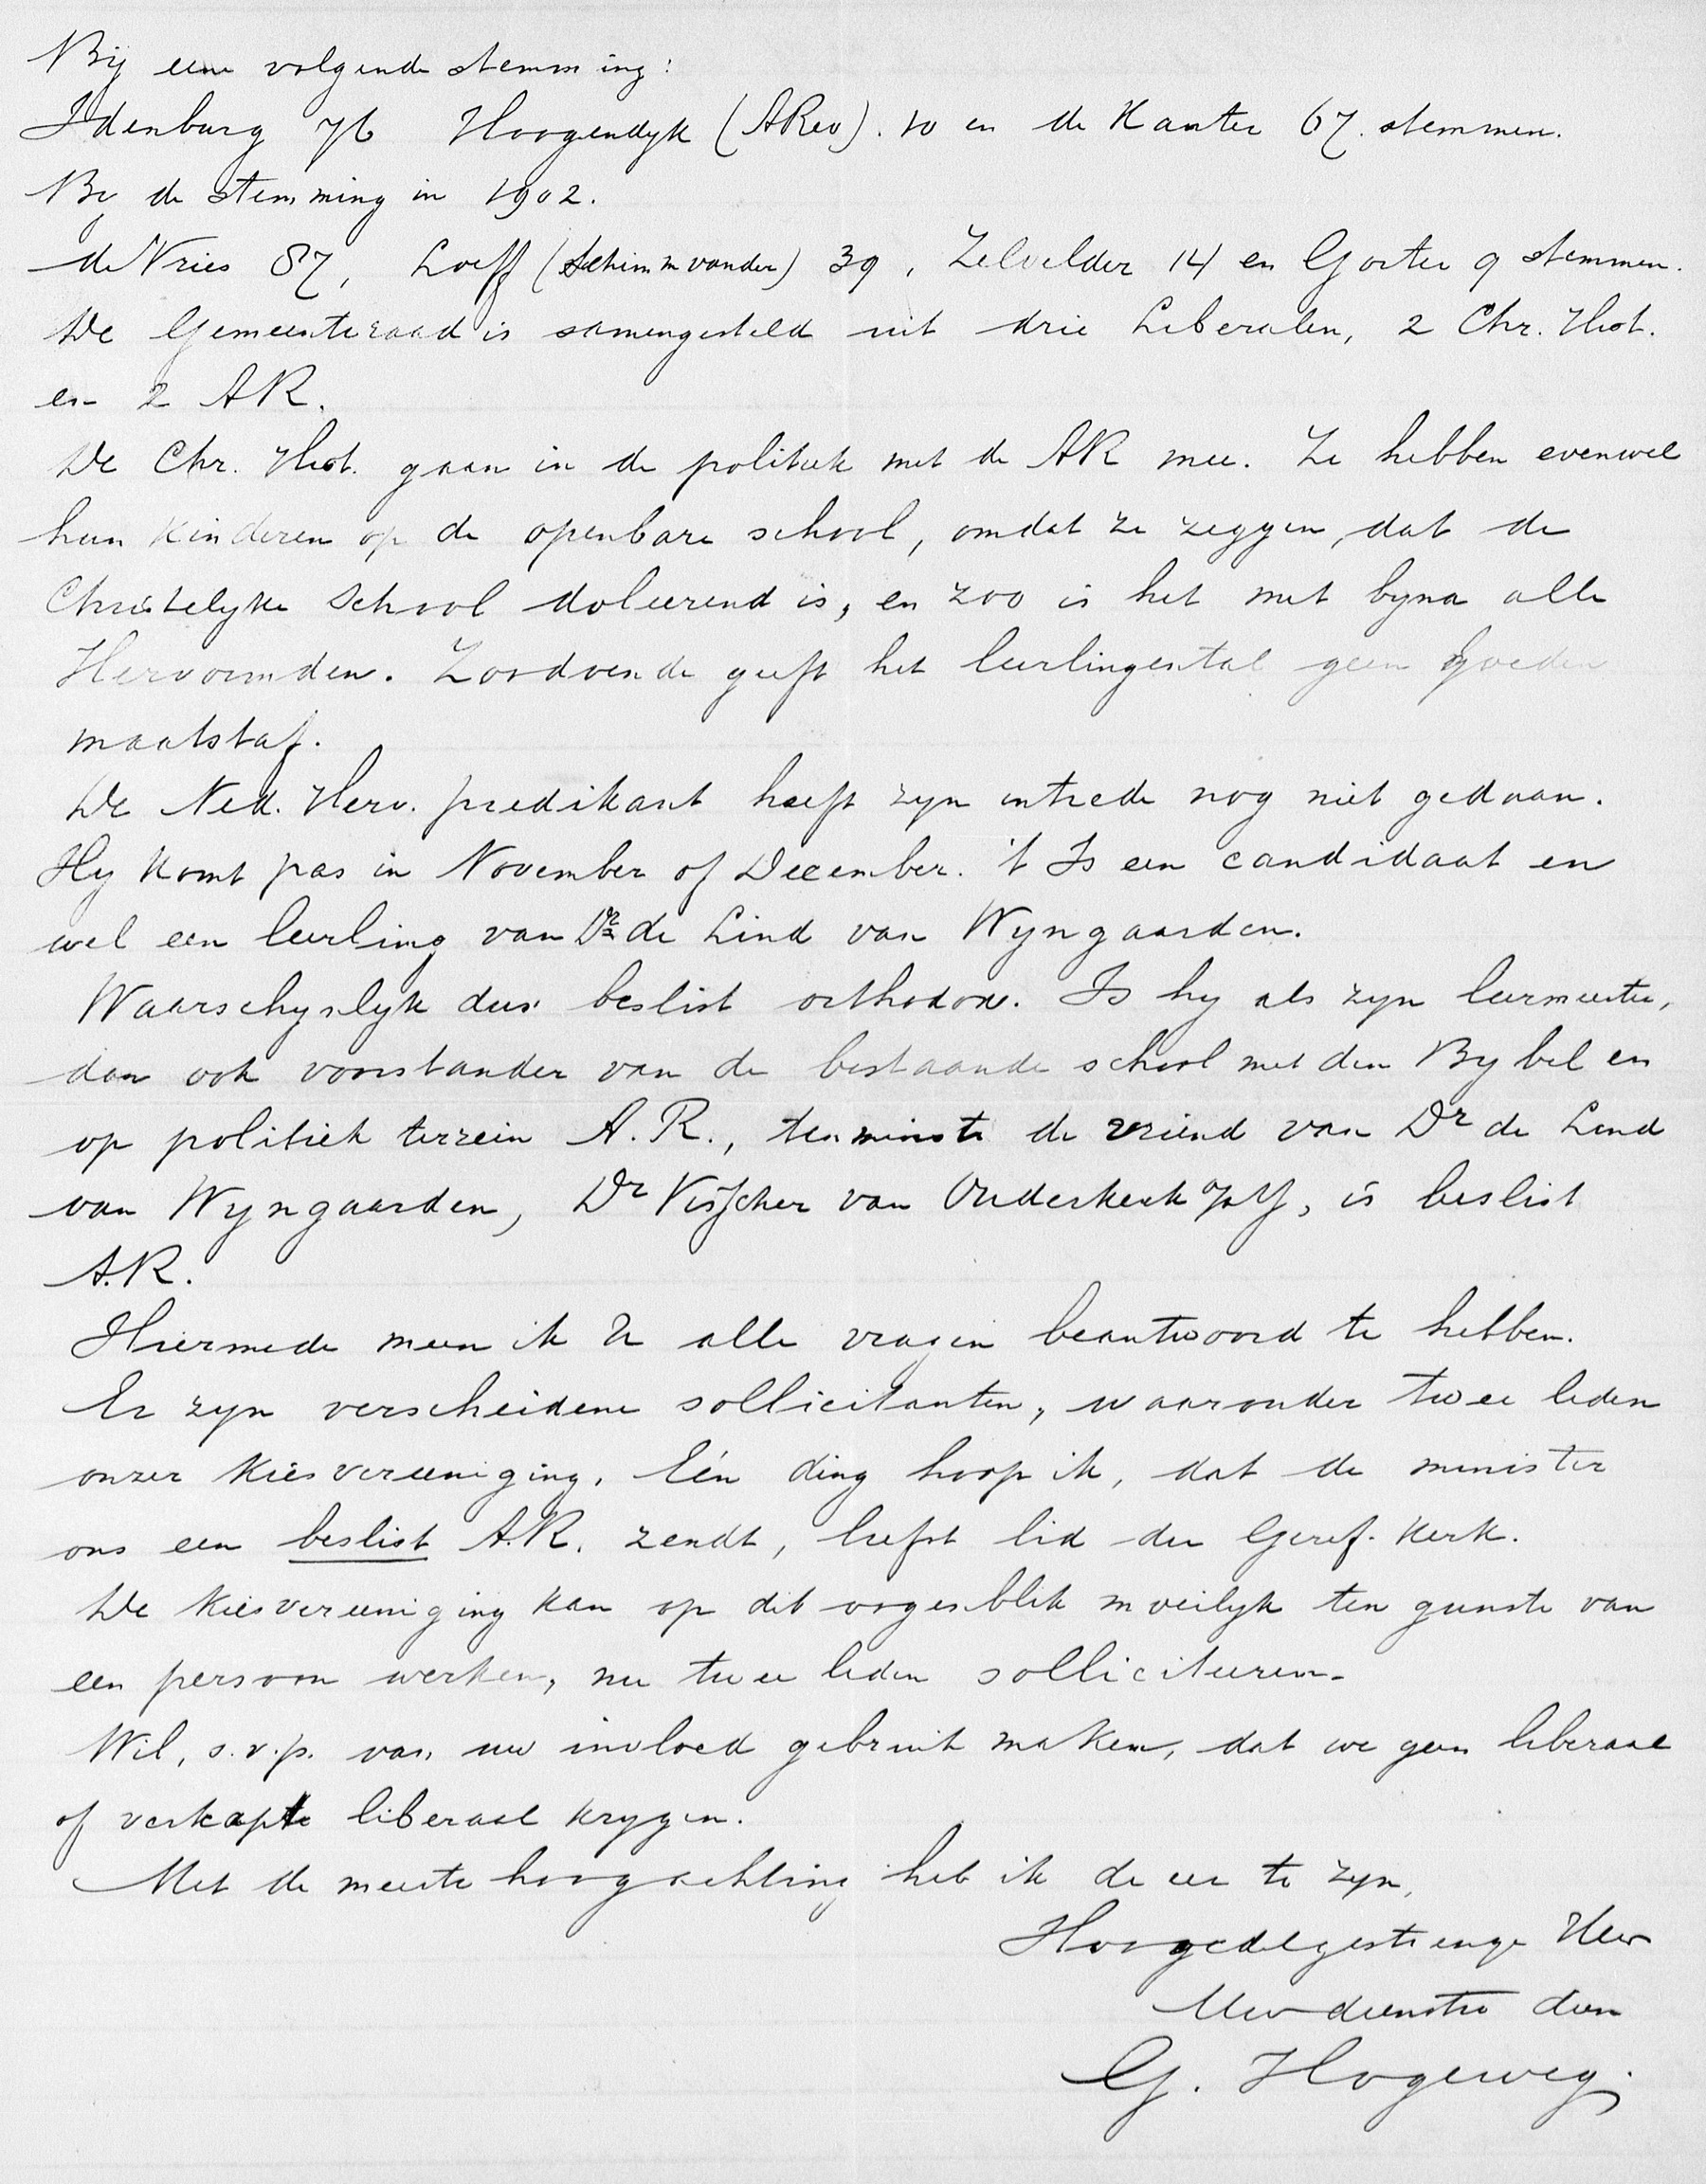 Bij eene volgende stemming:
Idenburg 76 Hoogendyk (ARev). 10 en de Kanter 67. stemmen.
By de stemming in 1902.
de Vries 87, Loeff (Schimmvander) 39, Zelvelder 14 en Gorter 9 stemmen.
De Gemeenteraad is samengesteld uit drie Liberalen, 2 Chr. Hist.
en 2 AR.
De Chr. Hist. gaan in de politiek met de AR mee. Ze hebben evenwel
hun kinderen op de openbare school, omdat ze zeggen, dat de
Christelyke School doleerend is, en zoo is het met byna alle
Hervormden. Zoodoende geeft het leerlingental geen goeden
maatstaf.
De Ned. Herv. predikant heeft zyn intrede nog niet gedaan.
Hy komt pas in November of December. 't Is een candidaat en
wel een leerling van Dr de Lind van Wyngaarden.
Waarschynlyk dus beslist orthodox. Is hy als zyn leermeester,
dan ook voorstander van de bestaande school met den Bybel en
op politiek terrein A.R., tenminste de vriend van Dr de Lind
van Wyngaarden, Dr Visscher van Ouderkerk a/d Y, is beslist
A.R.
Hiermede meen ik U alle vragen beantwoord te hebben.
Er zyn verscheidene sollicitanten, waaronder twee leden
onzer Kiesvereeniging. Eén ding hoop ik, dat de minister
ons een beslist A.R. zendt, liefst lid der Geref. Kerk.
De Kiesvereeniging kan op dit oogenblik moeilyk ten gunste van
een persoon werken, nu twee leden solliciteeren.
Wil, s.v.p. van uw invloed gebruik maken, dat we geen liberaal
of verkapte liberaal krygen.
Met de meeste hoogachting heb ik de eer te zyn,
Hoogedelgestrenge Heer
Uw dienstv dien
G. Hogeweg.